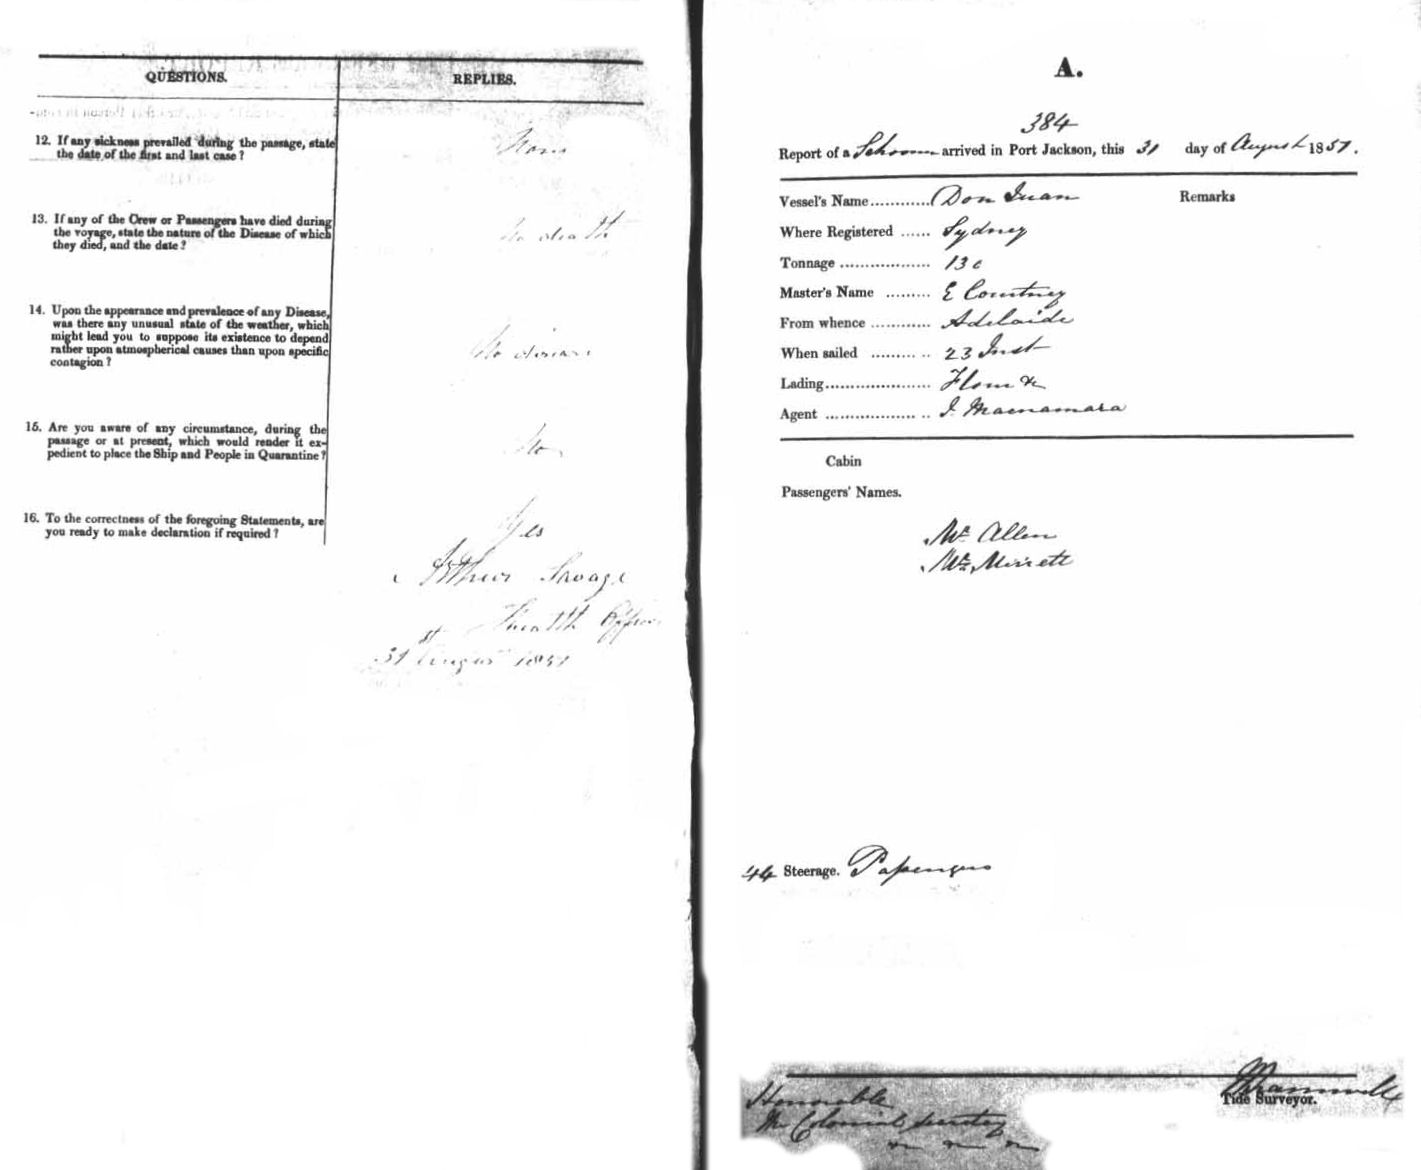 QUESTIONS.
REPLIES.
12. If any sickness prevailed during the passage, state
the date of the first and last case?
None
13. If any of the Crew or Passengers have died during
the voyage, state the nature of the Disease of which
they died, and the date?
No death
14. Upon the appearance and prevalence of any Disease,
was there any unusual state of the weather, which
might lead you to suppose its existence to depend
rather upon atmospherical causes than upon specific
contagion?
No disease
15. Are you aware of any circumstance, during the
passage or at present, which would render it ex-
pedient to place the Ship and People in Quarantine?
No
16. To the correctness of the foregoing Statements, are
you ready to make declaration if required?
Yes
Arthur Savage
Health Officer
31st August 1851
A.
384
Report of a Schooner arrived in Port Jackson, this 31 day of August 1851.
Vessel's Name............Don Juan
Remarks
Where Registered ...... Sydney
Tonnage .................. 130
Master's Name ......... E Courtney
From whence ............ Adelaide
When sailed ......... .. 23 Inst
Lading..................... Flour &c
Agent .................. .. J. Macnamara
Cabin
Passengers' Names.
Mr Allen
Mr Mirrett
44 Steerage. Passengers
Tide Surveyor.
Honorable
The Colonial Secretary
&c &c &c